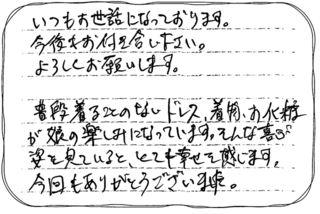 いつもお世話になっております。
今後もお付き合い下さい。
よろしくお願いします。
普段着ることのないドレス、着物、お化粧
が娘の楽しみになっています。そんな喜ぶ
姿を見ていると、とても幸せを感じます。
今回もありがとうございました。